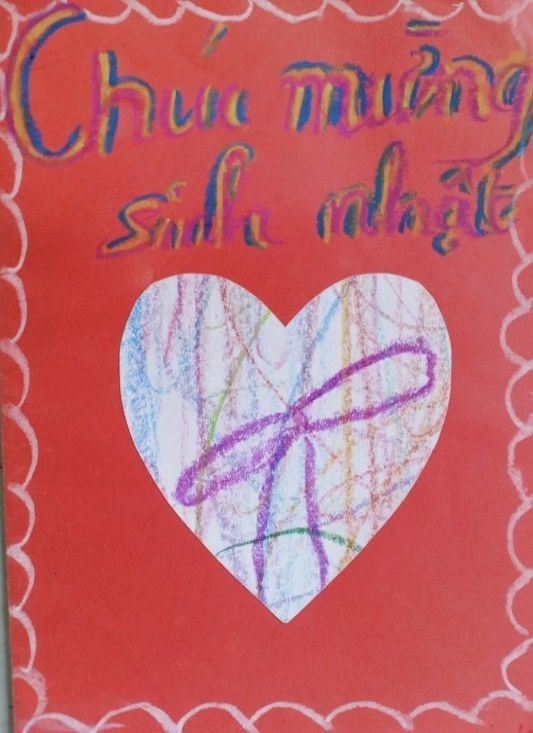 Chúc mừng
sinh nhật